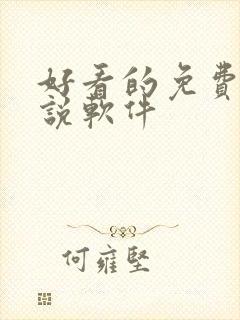 好看的免費
說軟件
何雍堅